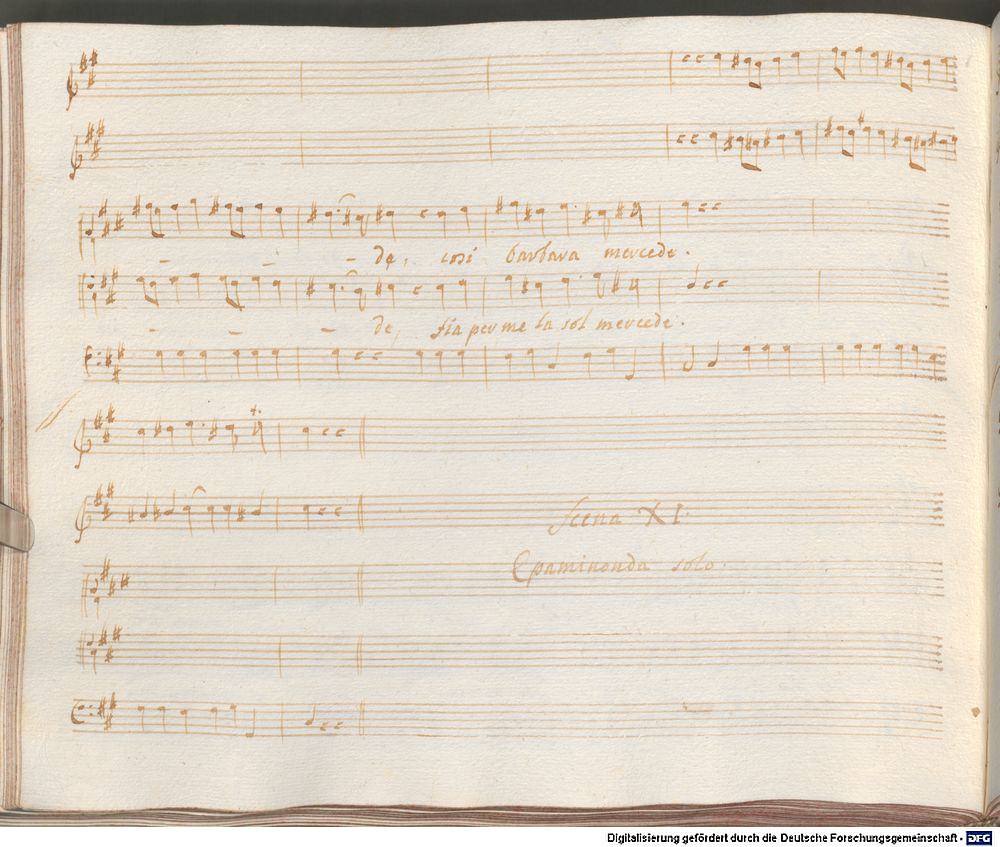 de, così barbara mercede.
de, sia per me la sol mercede.
Scena XI.
Epaminonda solo.
Digitalisierung gefördert durch die Deutsche Forschungsgemeinschaft - DFG